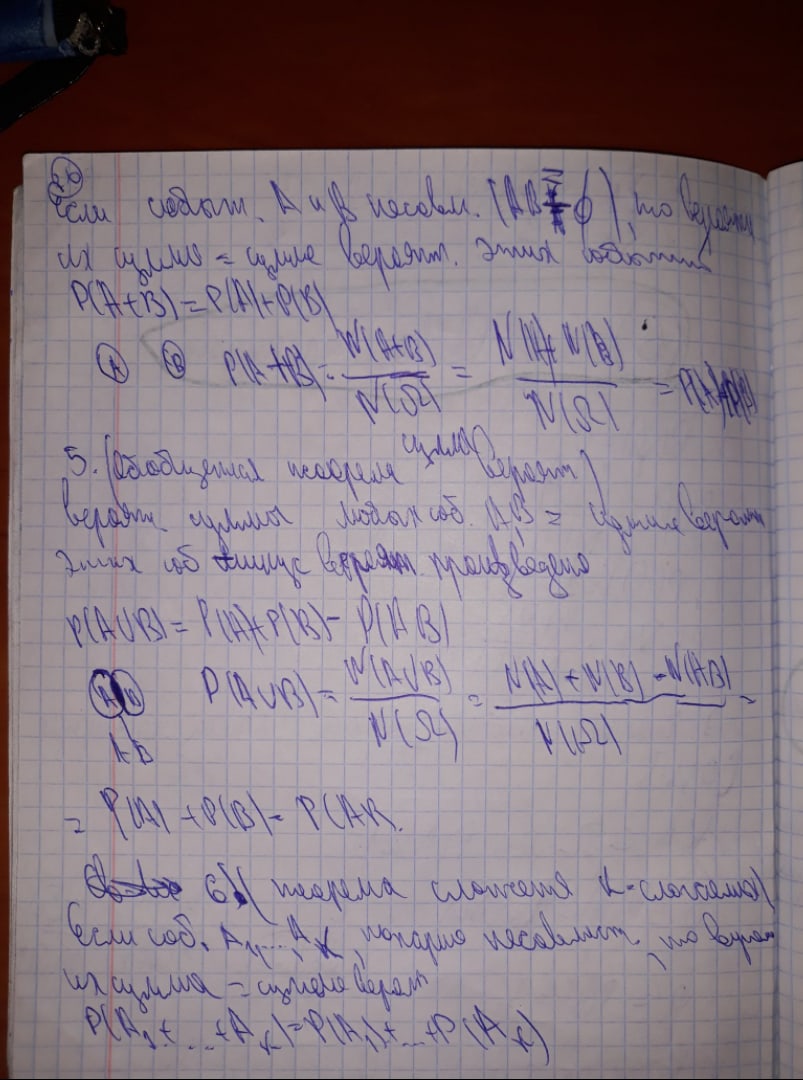 Если событ. A и B несовм. (AB = ∅), то вероятн
их суммы = сумме вероят. этих событий
P(A+B) = P(A)+P(B)
A B P(A+B) = N(A+B) / N(Ω) = N(A)+N(B) / N(Ω) = P(A)+P(B)
5. (Обобщенная теорема суммы вероят)
вероятн. суммы любых соб. A,B = сумме вероятн
этих соб минус вероятн. произведения
P(A∪B) = P(A)+P(B) - P(AB)
A B P(A∪B) = N(A∪B) / N(Ω) = N(A)+N(B)-N(AB) / N(Ω) =
AB
= P(A) + P(B) - P(AB.
6. (теорема сложения K-слагаемых)
Если соб. A₁, ..., Aₖ, попарно несовмест., то вероят
их сумма = сумме вероят
P(A₁+...+Aₖ) = P(A₁)+...+P(Aₖ)